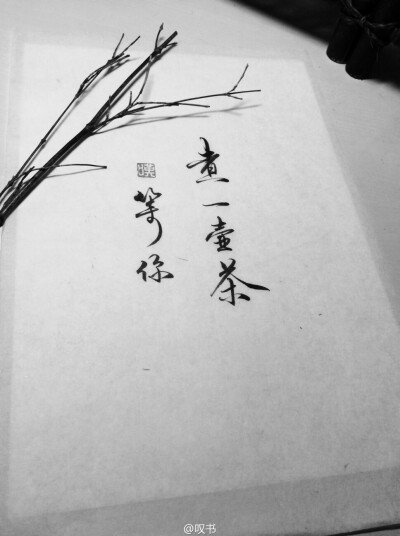 煮一壶茶
等你
@叹书